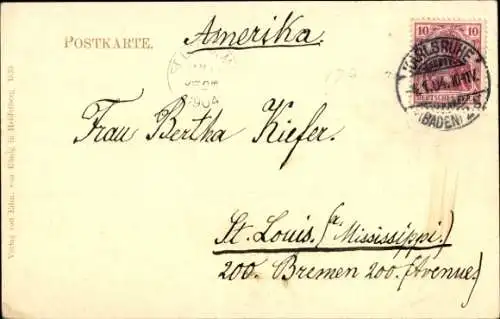 Amerika.
POSTKARTE.
10 10
KARLSRUHE
1.04. 10-11V.
(BADEN)
1904
Frau Bertha Kiefer.
St. Louis. (a. Mississippi.)
200. Bremen 200. (Avenue)
Verlag von Edm. von König in Heidelberg.